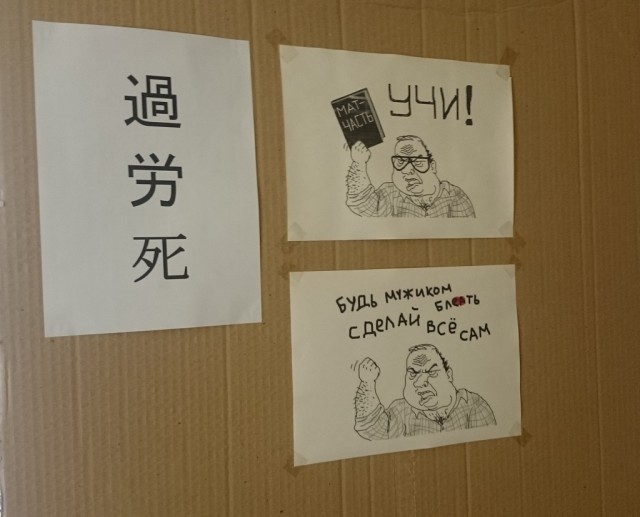 過
労
死
УЧИ!
МАТ-
ЧАСТЬ
БУДЬ МУЖИКОМ
СДЕЛАЙ ВСЁ САМ